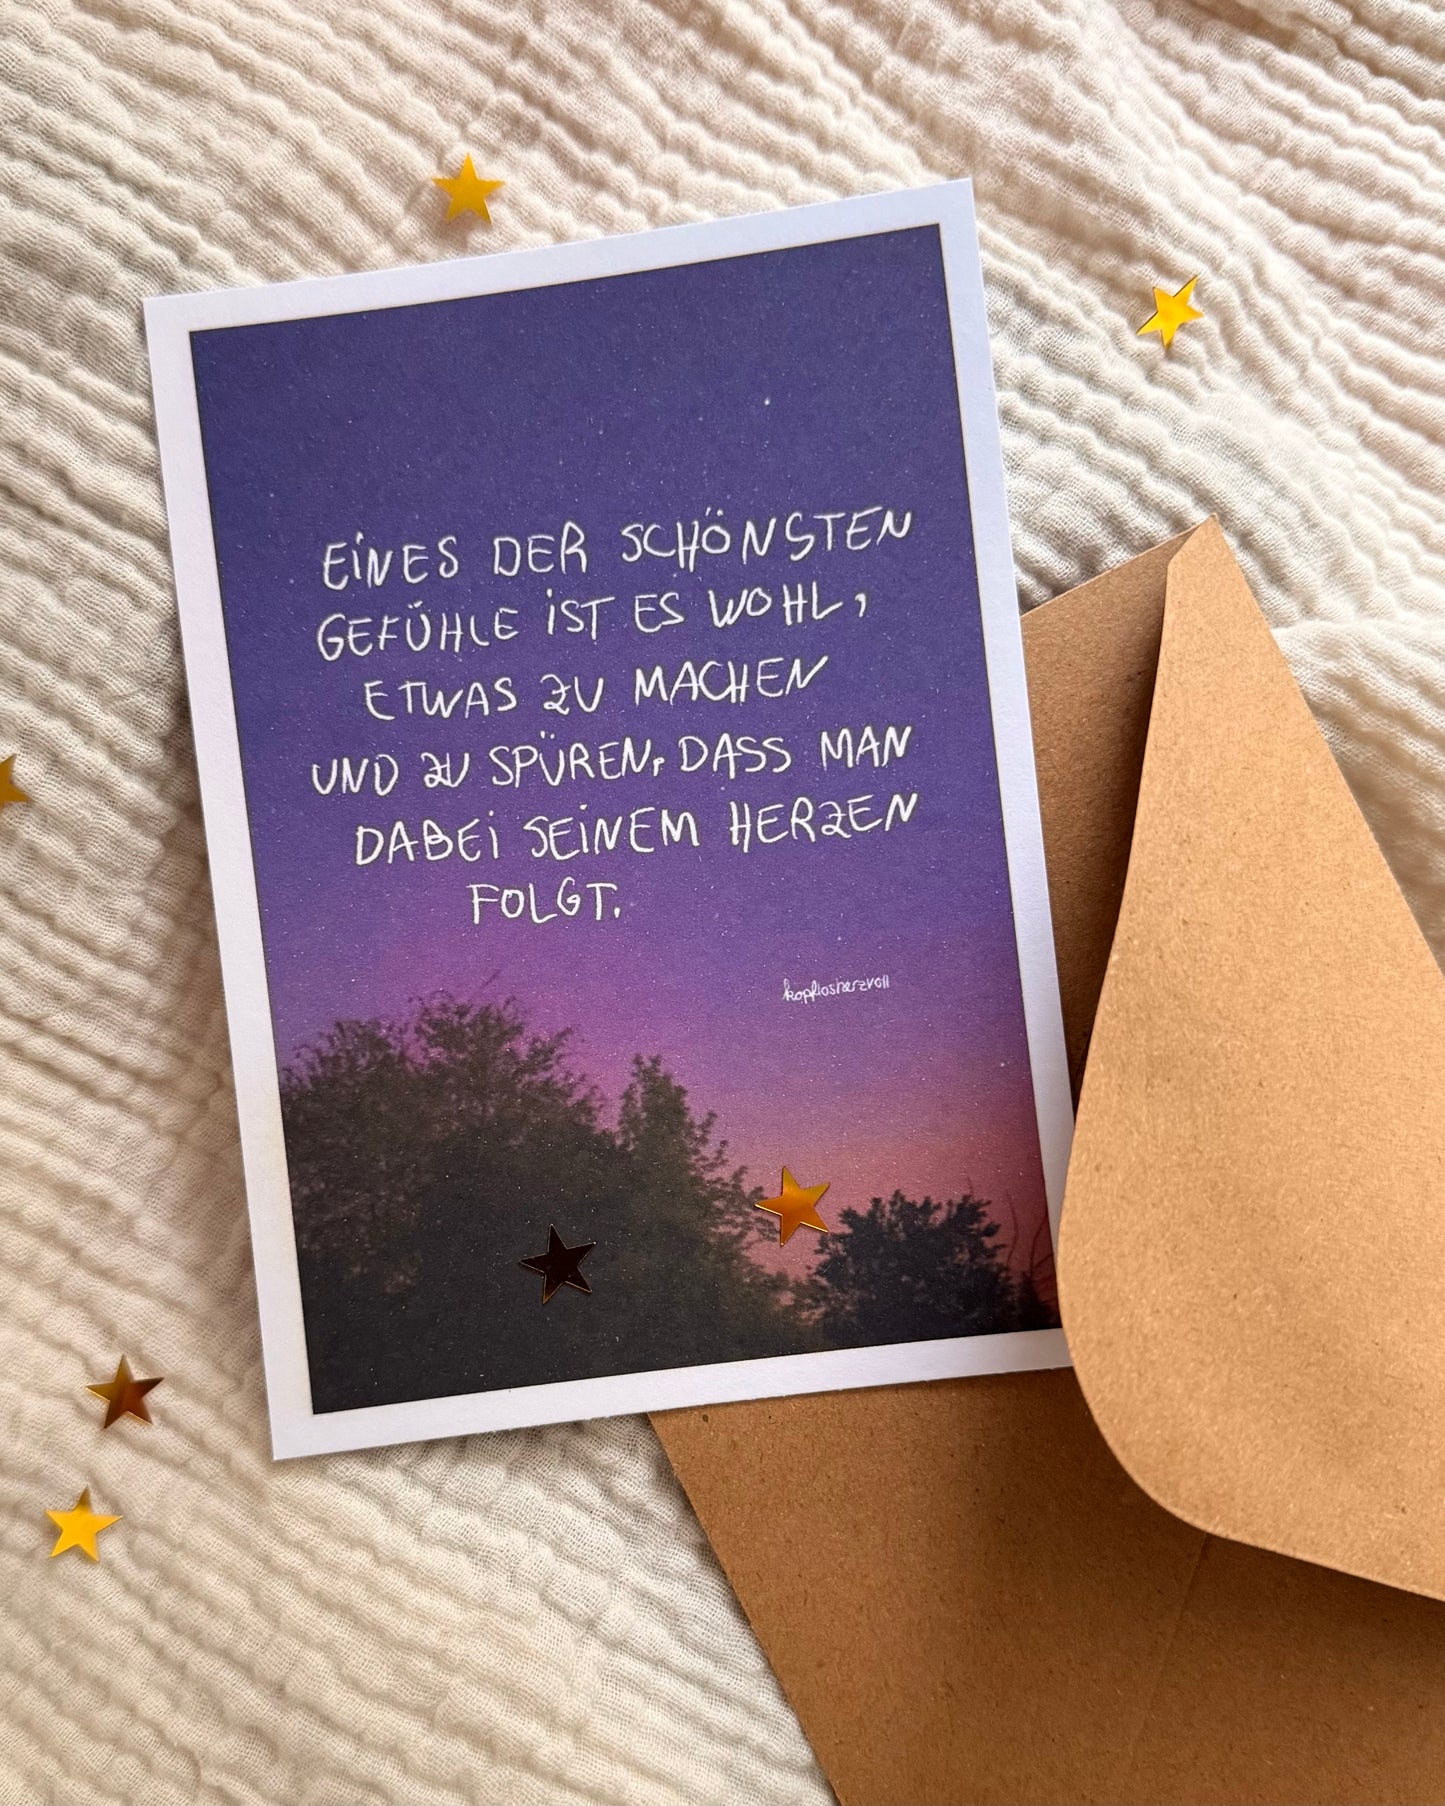 EINES DER SCHÖNSTEN
GEFÜHLE IST ES WOHL,
ETWAS ZU MACHEN
UND ZU SPÜREN, DASS MAN
DABEI SEINEM HERZEN
FOLGT.
kopflosherzvoll